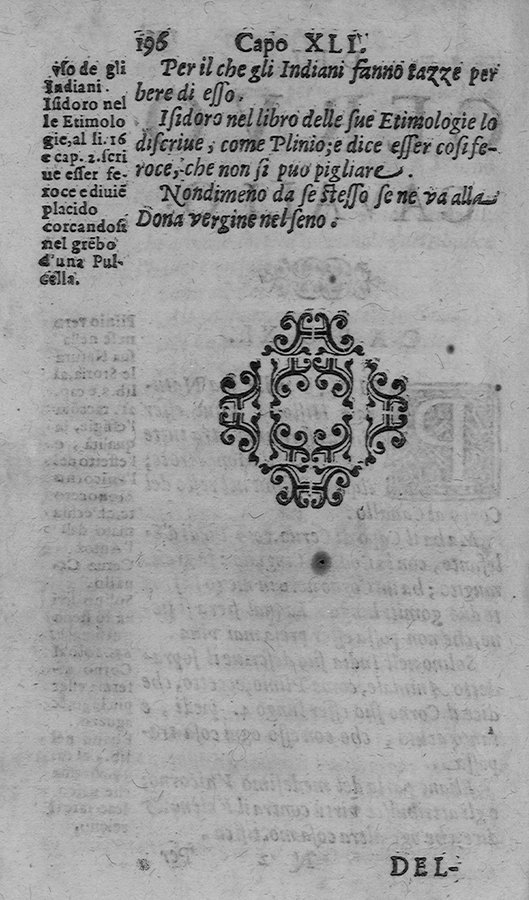 196 Capo XLI.
Per il che gli Indiani fanno tazze per
bere di esso.
Isidoro nel libro delle sue Etimologie lo
discriue, come Plinio; e dice esser cosi fe-
roce, che non si puo pigliare.
Nondimeno da se stesso se ne va alla
Dona vergine nel seno.
vso de gli
Indiani.
Isidoro nel
le Etimolo
gie, al li. 16
e cap. 2. scri
ue esser fe-
roce e diuiē
placido
corcandosi
nel grēbo
d'una Pul-
cella.
DEL-